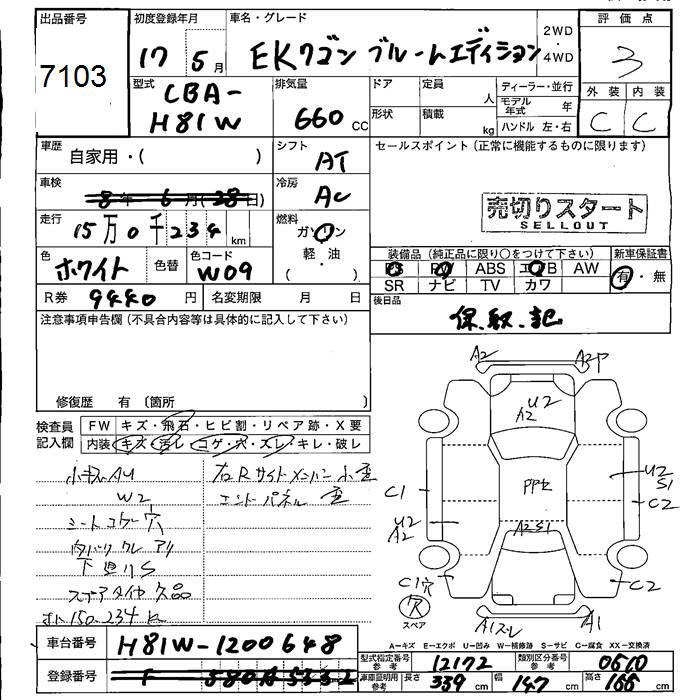 出品番号
7103
初度登録年月
17 5月
車名・グレード
EKワゴン ブルームエディション
2WD
・
4WD
評価点
3
外装 内装
C C
型式
CBA-
H81W
排気量
660 CC
ドア
定員
人
形状
積載
kg
ディーラー・並行
モデル年式 年
ハンドル 左・右
車歴
自家用・( )
シフト
AT
セールスポイント(正常に機能するものに限ります)
車検
8年 6月(28日)
冷房
AC
売切りスタート
SELLOUT
走行
15万0千234km
燃料
ガソリン
軽・油
( )
色
ホワイト
色替
色コード
W09
装備品(純正品に限り○をつけて下さい)
PS PW ABS エアB AW
SR ナビ TV カワ
新車保証書
有・無
R券 9440円
名変期限 月 日
後日品
保、取、記
注意事項申告欄(不具合内容等は具体的に記入して下さい)
修復歴 有〔箇所 〕
検査員
記入欄
FW キズ・飛石・ヒビ割・リペア跡・X要
内装 キズ・汚レ・コゲ・穴・ズレ・キレ・破レ
W2
エンドパネル
スペアタイヤ欠品
150.234K
A2
A2P
U2
A2
PPセ
A2S1
C1
U2
A2
U2
S1
C2
C1穴
C2
A1ズレ
A1
スペア
A-キズ E-エクボ U-凹み W-補修跡 S-サビ C-腐食 XX-交換済
車台番号
H81W-1200648
登録番号
型式指定番号
参考
12172
類別区分番号
参考
0610
車庫証明用
参考
長さ 339cm
幅 147cm
高さ 155cm